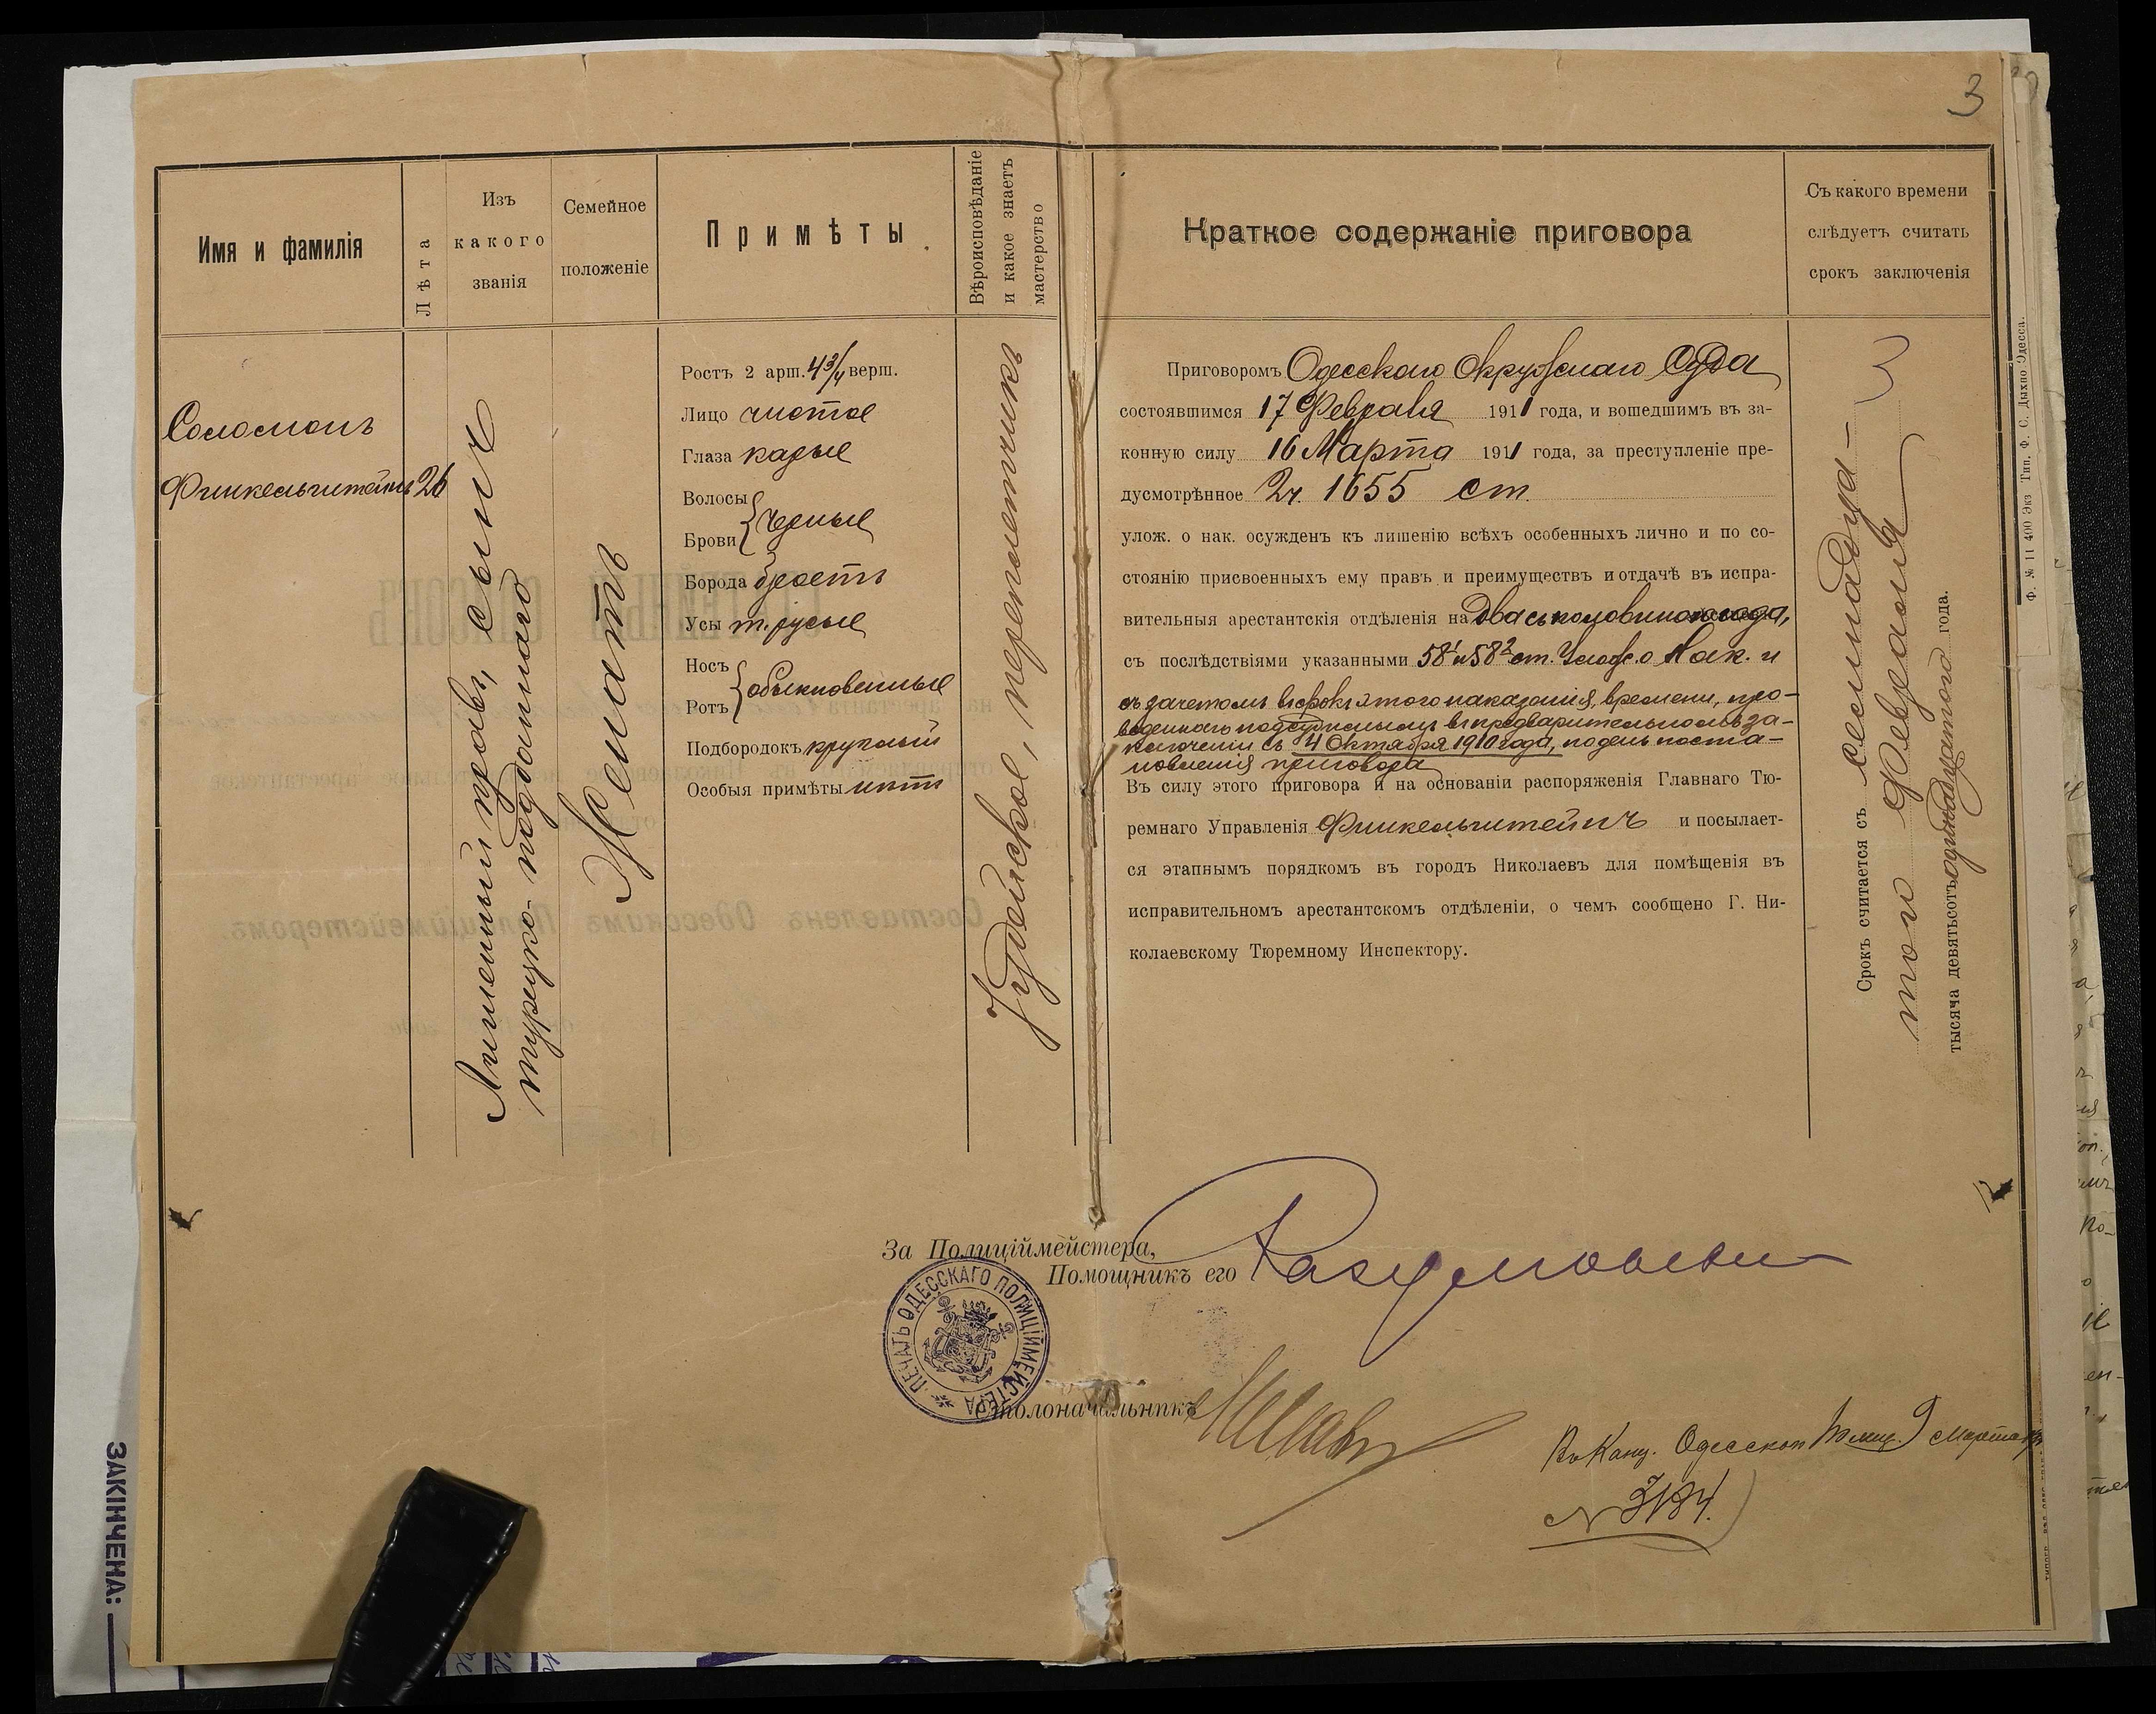 3
Имя и фамилія
Лѣта
Изъ
какого
званія
Семейное
положеніе
Примѣты
Вѣроисповѣданіе
и какое знаетъ
мастерство
Соломонъ
Финкельштейнъ
26
Лишенный правъ, сынъ
турецко-подданнаго
Женатъ
Ростъ 2 арш. 4 3/4 верш.
Лицо чистое
Глаза карые
Волосы
Брови
черные
Борода брѣетъ
Усы т. русые
Носъ
Ротъ
обыкновенные
Подбородокъ круглый
Особыя примѣты нѣтъ
Іудейское, переплетчикъ
Краткое содержаніе приговора
Съ какого времени
слѣдуетъ считать
срокъ заключенія
Приговоромъ Одесскаго Окружнаго Суда
состоявшимся 17 Февраля 1911 года, и вошедшимъ въ за-
конную силу 16 Марта 1911 года, за преступленіе пре-
дусмотрѣнное 2 ч. 1655 ст.
улож. о нак. осужденъ къ лишенію всѣхъ особенныхъ лично и по со-
стоянію присвоенныхъ ему правъ и преимуществъ и отдачѣ въ испра-
вительныя арестантскія отдѣленія на два съ половиною года,
съ послѣдствіями указанными 58¹ и 58² ст. Улож. о Нак. и
съ зачетомъ въ срокъ этого наказанія, времени, про-
веденнаго подсудимымъ въ предварительномъ за-
ключеніи съ 4 Октября 1910 года, по день поста-
новленія приговора
Въ силу этого приговора и на основаніи распоряженія Главнаго Тю-
ремнаго Управленія Финкельштейнъ и посылает-
ся этапнымъ порядкомъ въ городъ Николаевъ для помѣщенія въ
исправительномъ арестантскомъ отдѣленіи, о чемъ сообщено Г. Ни-
колаевскому Тюремному Инспектору.
3
Срокъ считается съ семнадца-
таго Февраля
тысяча девятьсотъ одиннадцатаго года.
За Полиціймейстера,
Помощникъ его
ПЕЧАТЬ ОДЕССКАГО ПОЛИЦІЙМЕЙСТЕРА
Столоначальникъ
Въ Канц. Одесскаго 9 Марта
N 3184.
Ф. № 11 400 Экз Тип. Ф. С. Дыхно Одесса.
ЗАКІНЧЕНА: